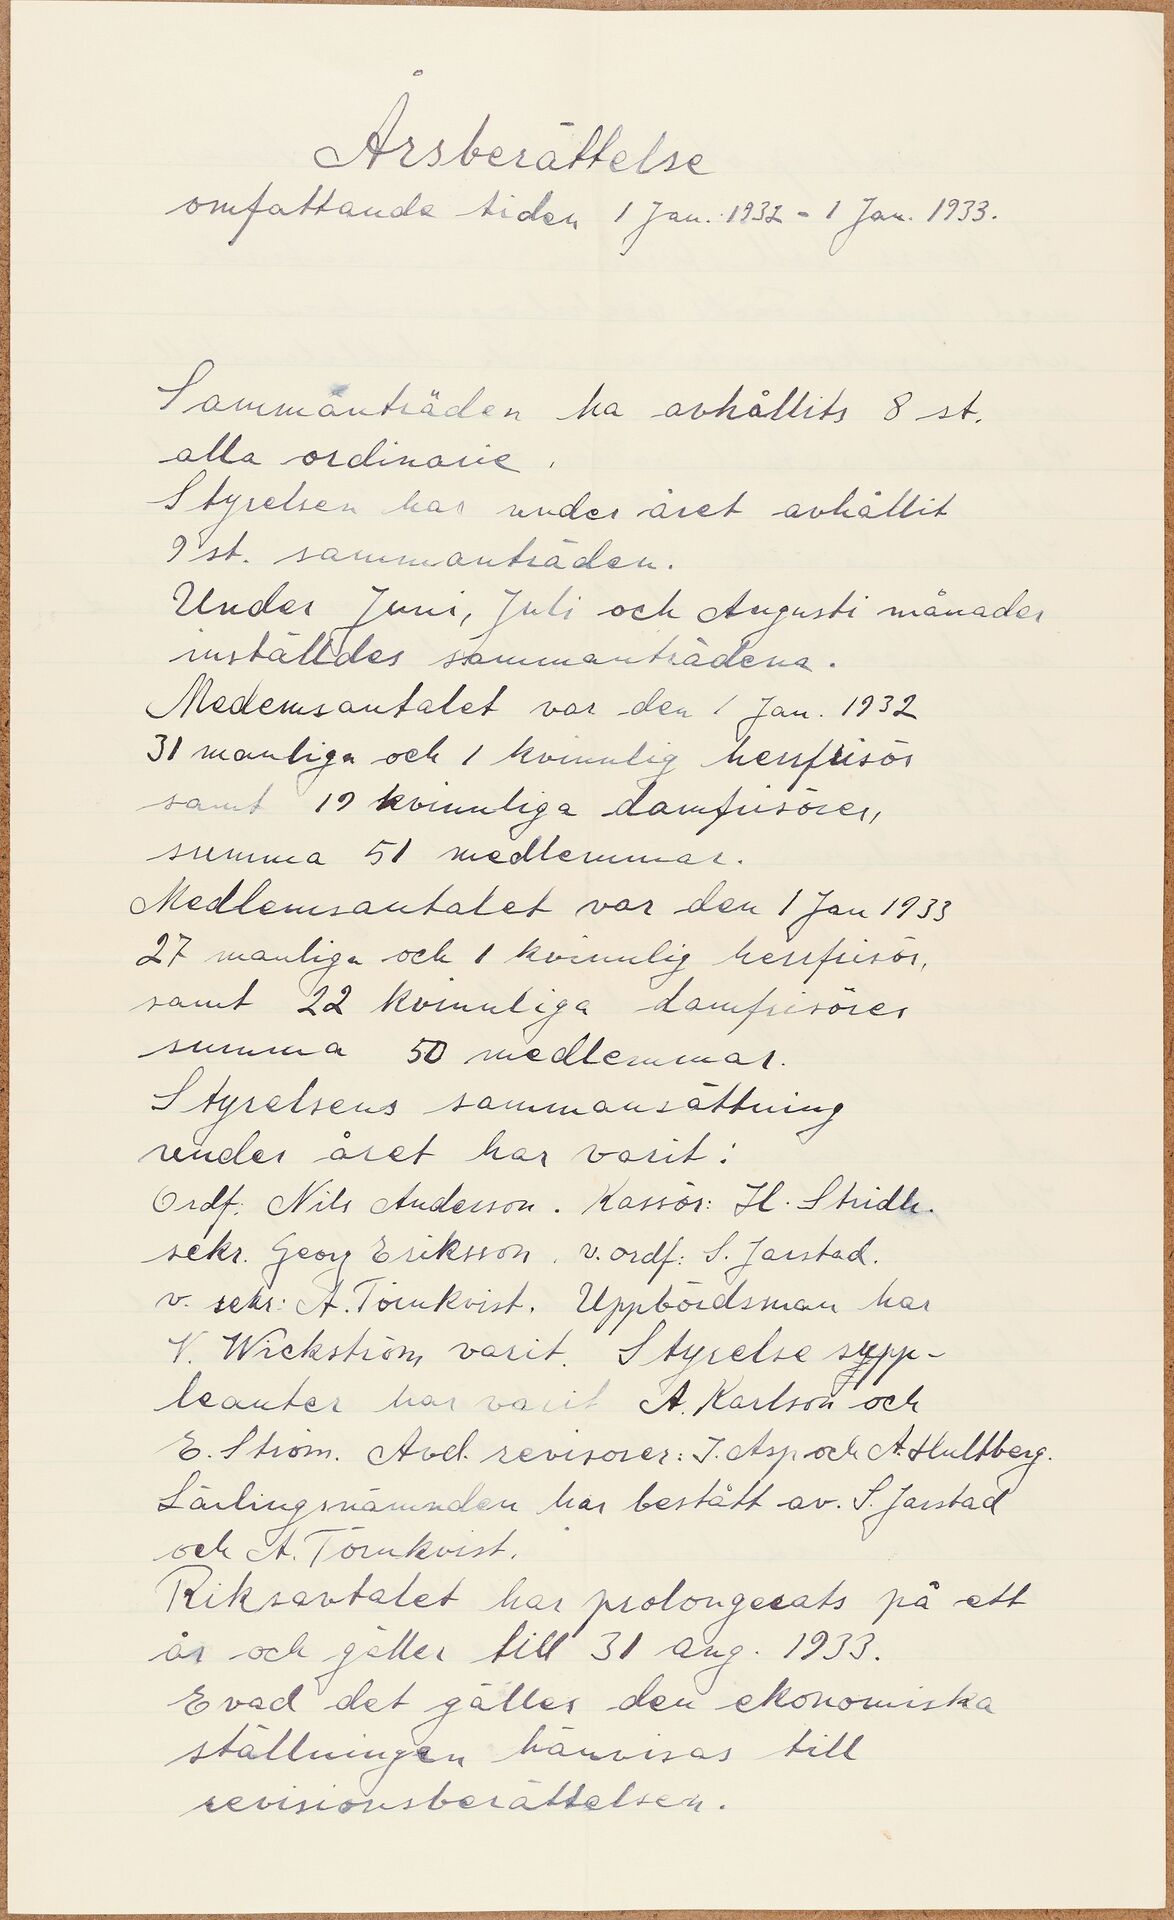 Årsberättelse
omfattande tiden 1 Jan. 1932 - 1 Jan. 1933.
Sammanträden ha avhållits 8 st.
alla ordinarie.
Styrelsen har under året avhållit
9 st. sammanträden.
Under Juni, Juli och Augusti månader
inställdes sammanträdena.
Medemsantalet var den 1 Jan. 1932
31 manliga och 1 kvinnlig herrfrisör
samt 19 kvinnliga damfrisörer,
summa 51 medlemmar.
Medlemsantalet var den 1 Jan 1933
27 manliga och 1 kvinnlig herrfrisör,
samt 22 kvinnliga damfrisörer
summa 50 medlemmar.
Styrelsens sammansättning
under året har varit:
Ordf: Nils Anderson. Kassör: H. Stridh.
sekr. Georg Eriksson. v. ordf: S. Jarstad.
v. sekr: A. Törnkvist. Uppbördsman har
V. Wickström varit. Styrelse supp-
leanter har varit A. Karlson och
E. Ström. Avd. revisorer: J. Asp och A. Hultberg.
Lärlingsnämnden har bestått av. S. Jarstad
och A. Törnkvist.
Riksavtalet har prolongerats på ett
år och gäller till 31 aug. 1933.
Evad det gäller den ekonomiska
ställningen hänvisas till
revisionsberättelsen.